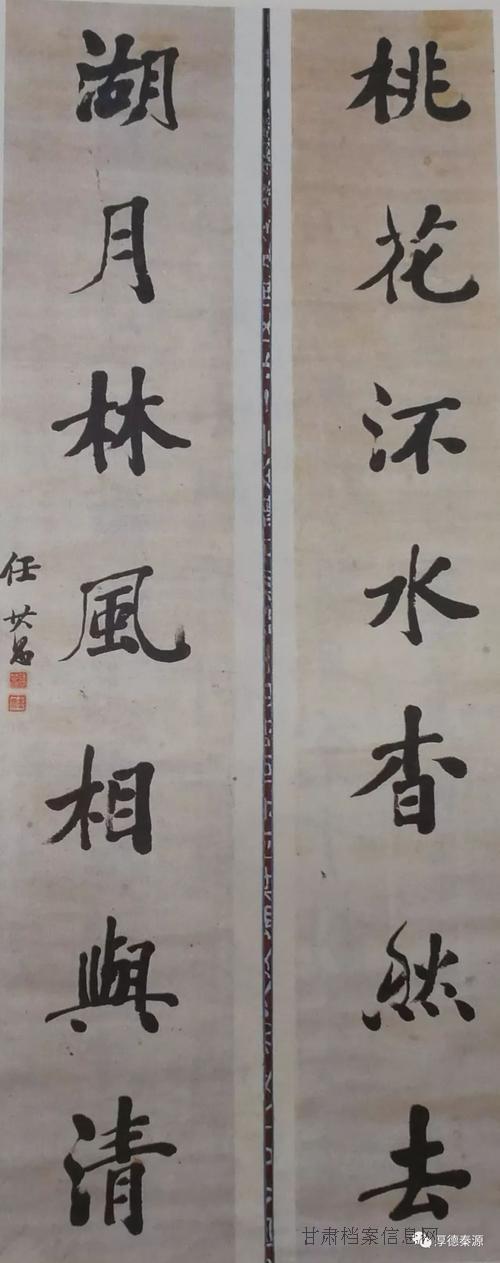 桃花流水杳然去
湖月林風相與清
任其昌
甘肃档案信息网
厚德秦源